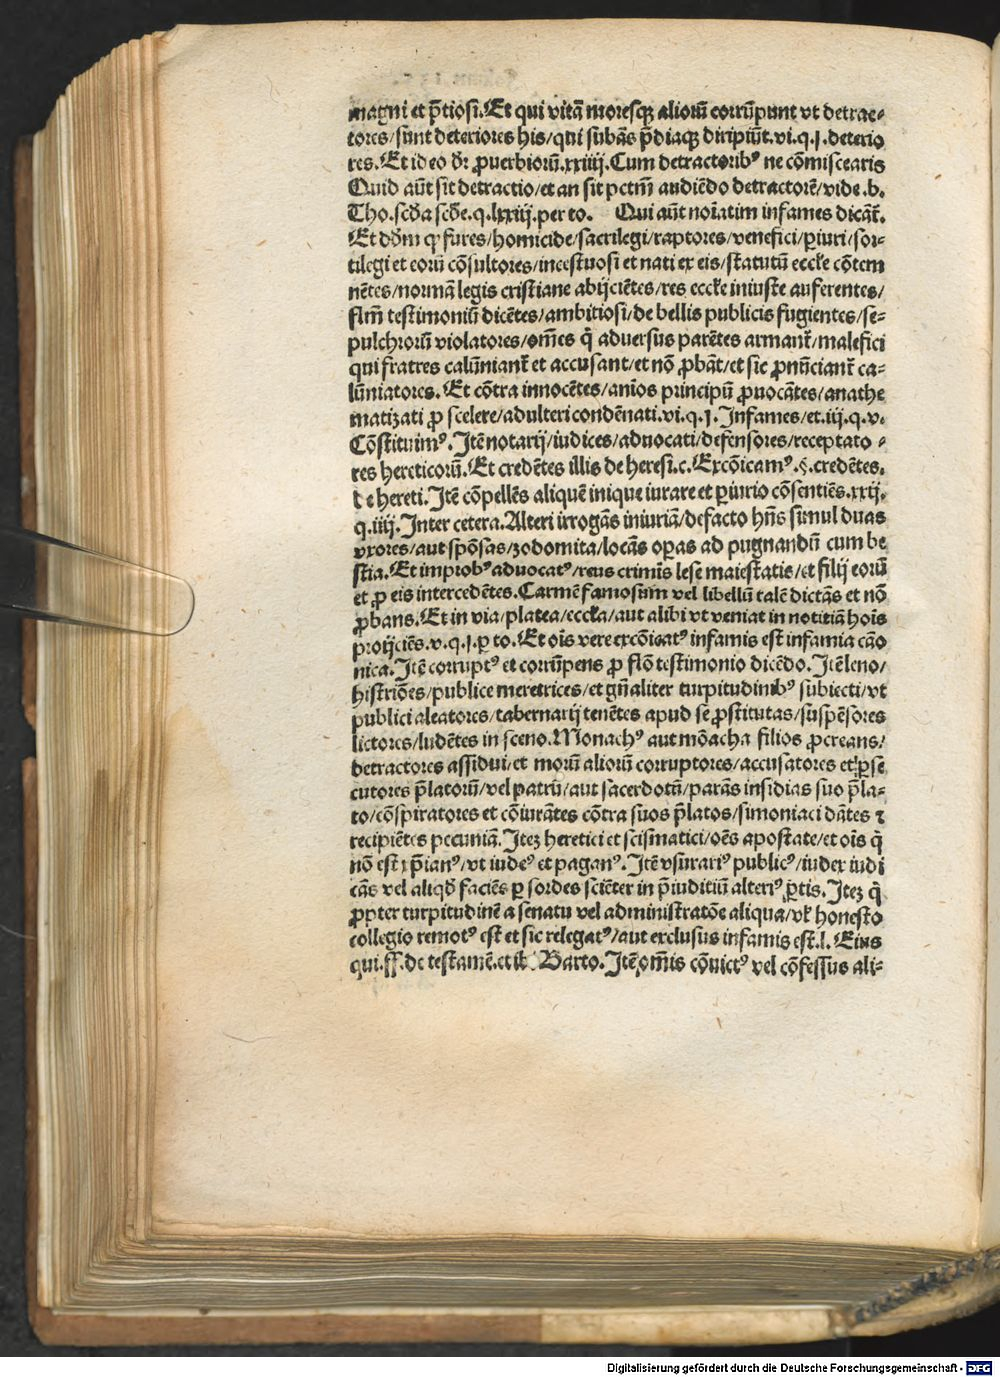 magni et p̄tiosi. Et qui vitā moresqꝫ aliorū corrūpunt vt detrac-
tores/sunt deteriores his/qui subāṡ p̄diaqꝫ diripiūt.vi.q.j.deterio
res. Et ideo dr̄ ꝓuerbiorū.xxiiij. Cum detractoribꝰ ne cōmiscearis
Quid aūt sit detractio/et an sit pctm̄ audiēdo detractorē/vide.b.
Tho.scd̄a scd̄e.q.lxxiij.per to. Qui aūt noīatim infames dicāt̄.
Et dd̄m ꝙ fures/homicide/sacrilegi/raptores/venefici/ꝑiuri/sor-
tilegi et eorū cōsultores/incestuosi et nati ex eis/statutū eccƚe cōtem
nētes/normā legis cristiane abijciētes/res eccƚe iniuste auferentes/
flm̄ testimoniū dicētes/ambitiosi/de bellis publicis fugientes/se-
pulchrorū violatores/om̄es q̄ aduersus parētes armant̄/malefici
qui fratres calūniant̄ et accusant/et nō ꝓbāt/et sic ꝓnūciant̄ ca-
lūniatores. Et cōtra innocētes/anīos principū ꝓuocātes/anathe
matizati ꝓ scelere/adulteri condēnati.vi.q.j. Infames/et.iij.q.v.
Cōstituimꝰ. Itē notarij/iudices/aduocati/defensores/receptato-
res hereticorū. Et credētes illis de heresi.c. Excōicamꝰ.§.credētes.
de hereti. Itē cōpellēs aliquē inique iurare et ꝑiurio cōsentiēs.xxij.
q.iiij. Inter cetera. Alteri irrogās iniuriā/defacto hn̄s simul duas
vxores/aut spōsas/zodomita/locās oꝑas ad pugnandū cum be
stia. Et improbꝰ aduocatꝰ/reus criminis lese maiestatis/et filij eorū
et ꝓ eis intercedētes. Carmē famosum vel libellū talē dictās et nō
ꝓbans. Et in via/platea/eccƚa/aut alibi vt veniat in notitiā hoīs
proijciēs.v.q.j.ꝑ to. Et oīs vere excōicatꝰ infamis est infamia cāo
nica. Itē corruptꝰ et corrūpens ꝓ flō testimonio dicēdo. Itē leno/
histriōes/publice meretrices/et gn̄aliter turpitudinibꝰ subiecti/vt
publici aleatores/tabernarij tenētes apud se ꝓstitutas/suspēsores
lictores/ludētes in sceno. Monachꝰ aut mōacha filios ꝓcreans/
detractores assidui/et morū aliorū corruptores/accusatores et ꝑse
cutores p̄latorū/vel patrū/aut sacerdotū/parās insidias suo p̄la-
to/cōspiratores et cōiurātes cōtra suos p̄latos/simoniaci dātes ⁊
recipiētes pecuniā. Iteꝫ heretici et scismatici/oēs apostate/et oīs q̄
nō est xp̄ianꝰ/vt iudeꝰ et paganꝰ. Itē vsurariꝰ publicꝰ/iudex iudi
cās vel aliqd̄ faciēs ꝑ sordes sciēter in p̄iuditiū alteriꝰ ꝑtis. Iteꝫ q̄
ꝓpter turpitudinē a senatu vel administratōe aliqua/vƚ honesto
collegio remotꝰ est et sic relegatꝰ/aut exclusus infamis est.l. Eius
qui.ff.de testamē.et ib̄ Barto. Itē om̄is cōuictꝰ vel cōfessus ali-
Digitalisierung gefördert durch die Deutsche Forschungsgemeinschaft - DFG